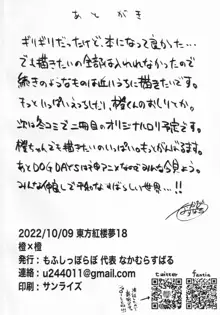 あとがき
ギリギリだったけど、本になって良かった…
でも描きたいの全部は入れれなかったので
続きのようなものは近いうちに描きたいです。
もっといっぱいえっちしたり、橙くんのおしりとか。
次は冬コミで二冊目のオリジナルロリ予定です。
橙ちゃんでも描きたいのいっぱい。もっとがんばるます。
あとDOG DAYSは神アニメなのでみんな今見よう。
みんな仲良しで争いなきすばらしい世界…!!
2022/10/09 東方紅楼夢18
橙×橙
発行：もふしっぽらぼ 代表 なかむらすばる
連絡：u244011@gmail.com
印刷：サンライズ
twitter
fantia